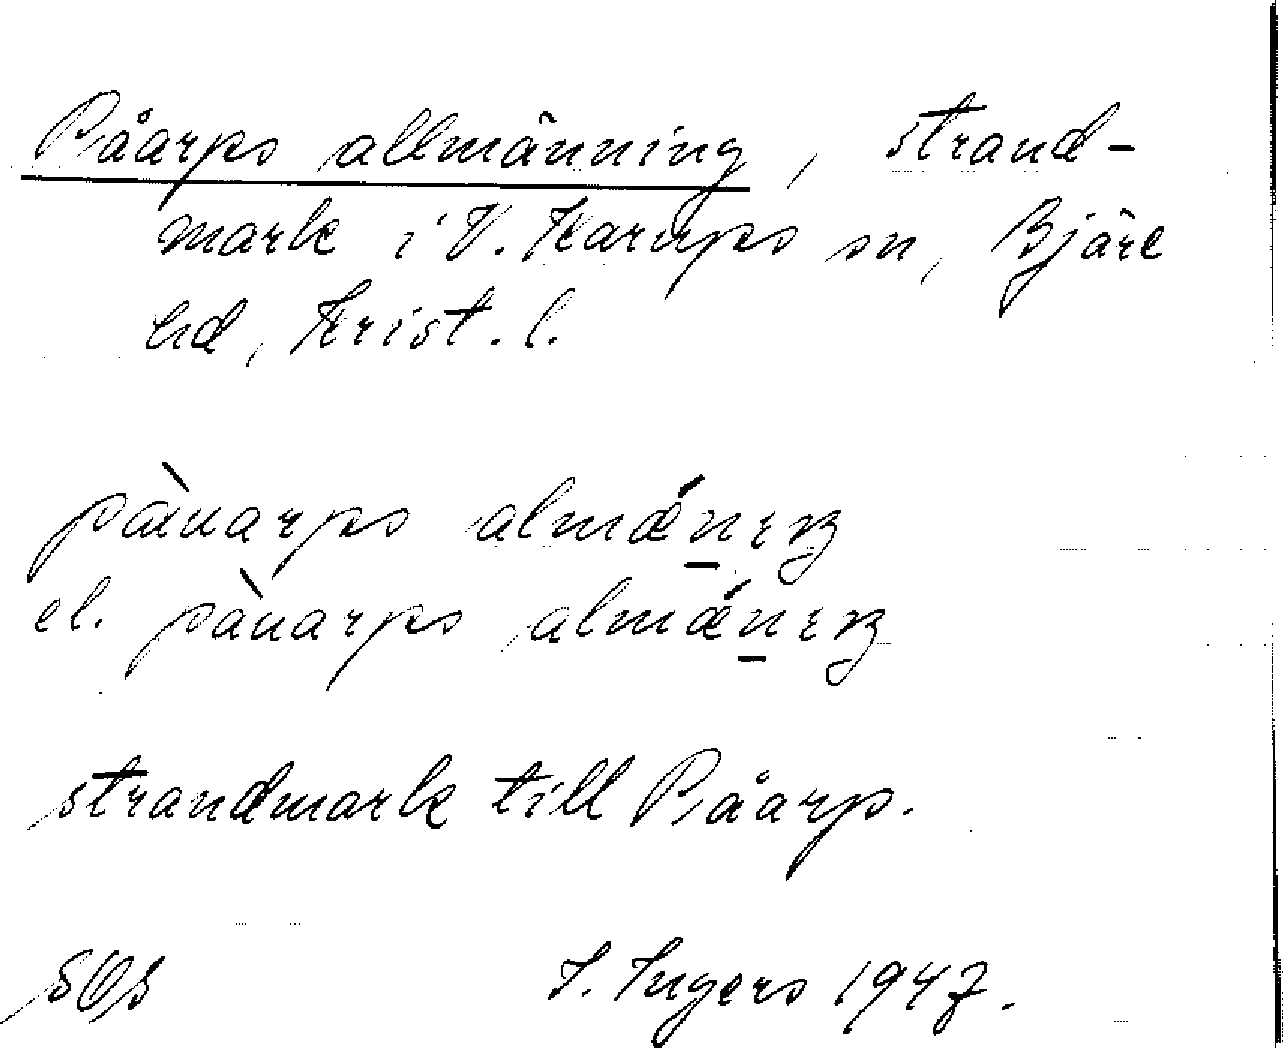 Påarps allmänning, strand-
mark i V. Karups sn, Bjäre
hd, Krist. l.
pæ̀uarps almǽn̲ɪŋ
el. pàuarps almǽn̲ɪŋ
strandmark till Påarp.
I. Ingers 1947.